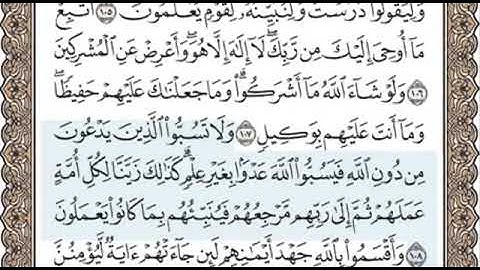 وَلِيَقُولُوا۟ دَرَسْتَ وَلِنُبَيِّنَهُۥ لِقَوْمٍ يَعْلَمُونَ ١٠٥ ٱتَّبِعْ
مَآ أُوحِىَ إِلَيْكَ مِن رَّبِّكَ ۖ لَآ إِلَٰهَ إِلَّا هُوَ ۖ وَأَعْرِضْ عَنِ ٱلْمُشْرِكِينَ
١٠٦ وَلَوْ شَآءَ ٱللَّهُ مَآ أَشْرَكُوا۟ ۗ وَمَا جَعَلْنَٰكَ عَلَيْهِمْ حَفِيظًا ۖ
وَمَآ أَنتَ عَلَيْهِم بِوَكِيلٍ ١٠٧ وَلَا تَسُبُّوا۟ ٱلَّذِينَ يَدْعُونَ
مِن دُونِ ٱللَّهِ فَيَسُبُّوا۟ ٱللَّهَ عَدْوًۢا بِغَيْرِ عِلْمٍ ۗ كَذَٰلِكَ زَيَّنَّا لِكُلِّ أُمَّةٍ
عَمَلَهُمْ ثُمَّ إِلَىٰ رَبِّهِم مَّرْجِعُهُمْ فَيُنَبِّئُهُم بِمَا كَانُوا۟ يَعْمَلُونَ
١٠٨ وَأَقْسَمُوا۟ بِٱللَّهِ جَهْدَ أَيْمَٰنِهِمْ لَئِن جَآءَتْهُمْ ءَايَةٌ لَّيُؤْمِنُنَّ